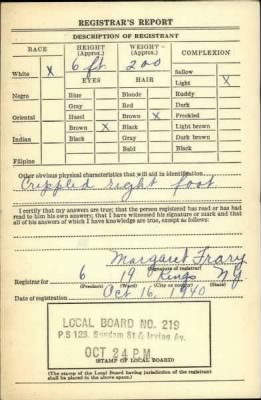 REGISTRAR'S REPORT
DESCRIPTION OF REGISTRANT
RACE HEIGHT (Approx.) WEIGHT (Approx.) COMPLEXION
White X 6 ft 200 Sallow
EYES HAIR Light X
Negro Blue Blonde Ruddy
Gray Red Dark
Oriental Hazel Brown X Freckled
Brown X Black Light brown
Indian Black Gray Dark brown
Bald Black
Filipino
Other obvious physical characteristics that will aid in identification
Crippled right foot
I certify that my answers are true; that the person registered has read or has had
read to him his own answers; that I have witnessed his signature or mark and that
all of his answers of which I have knowledge are true, except as follows:
Margaret Frary
(Signature of registrar)
Registrar for 6 19 Kings NY
(Precinct) (Ward) (State)
Date of registration Oct 16, 1940
LOCAL BOARD NO. 219
P.S 123. Suydam St & Irving Av.
OCT 24 P M
(STAMP OF LOCAL BOARD)
(The stamp of the Local Board having jurisdiction of the registrant
shall be placed in the above space.)